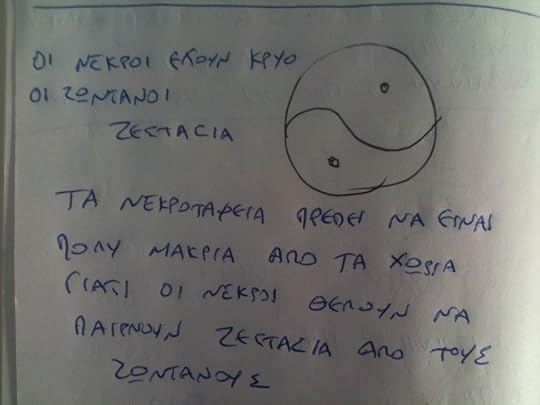 ΟΙ ΝΕΚΡΟΙ ΕΧΟΥΝ ΚΡΥΟ
ΟΙ ΖΩΝΤΑΝΟΙ
ΖΕΣΤΑΣΙΑ
ΤΑ ΝΕΚΡΟΤΑΦΕΙΑ ΠΡΕΠΕΙ ΝΑ ΕΙΝΑΙ
ΠΟΛΥ ΜΑΚΡΙΑ ΑΠΟ ΤΑ ΧΩΡΙΑ
ΓΙΑΤΙ ΟΙ ΝΕΚΡΟΙ ΘΕΛΟΥΝ ΝΑ
ΠΑΙΡΝΟΥΝ ΖΕΣΤΑΣΙΑ ΑΠΟ ΤΟΥΣ
ΖΩΝΤΑΝΟΥΣ